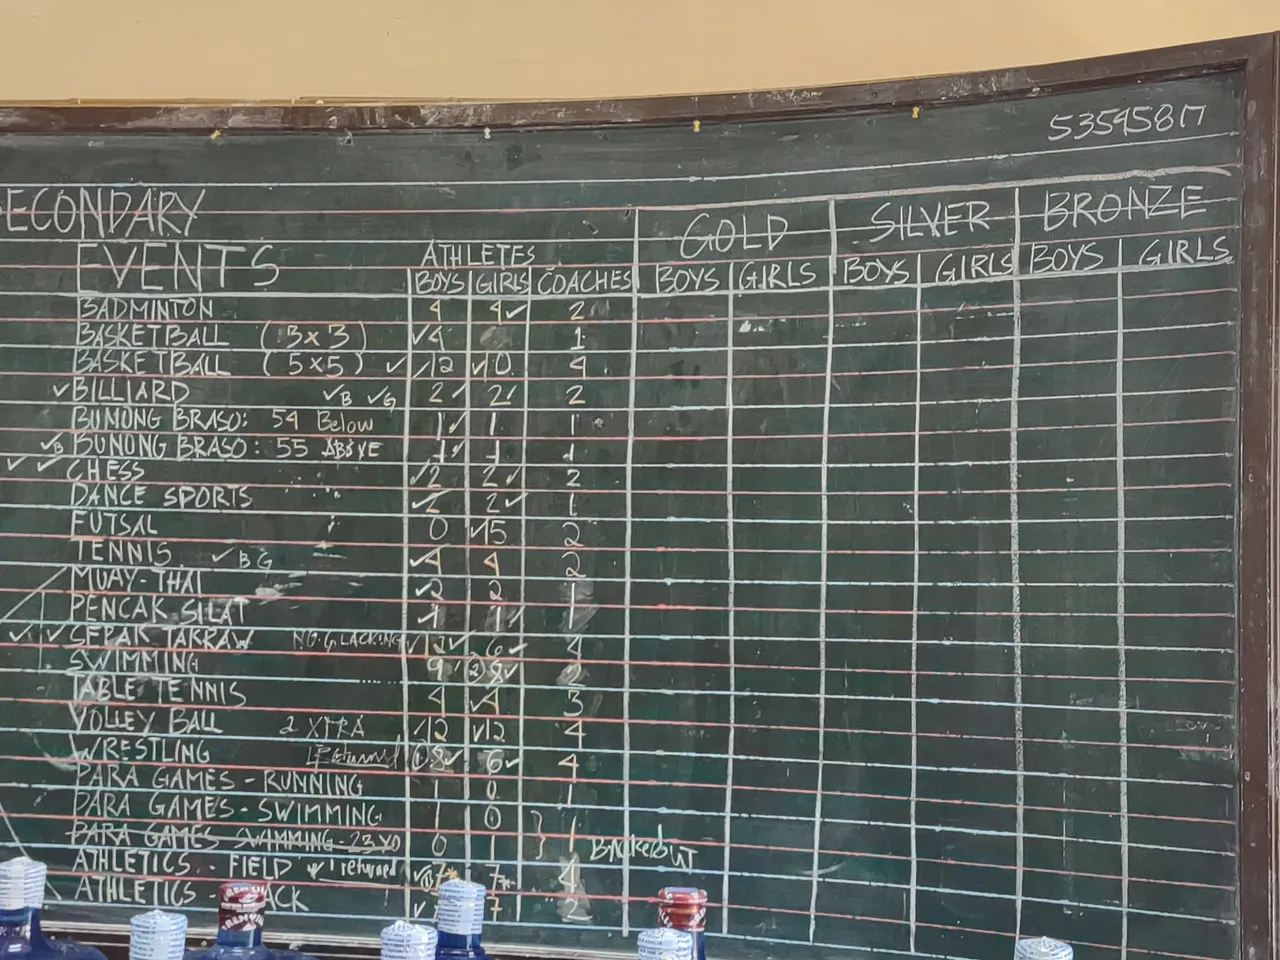 53545817
SECONDARY
GOLD SILVER BRONZE
EVENTS ATHLETES
BOYS GIRLS COACHES BOYS GIRLS BOYS GIRLS BOYS GIRLS
BADMINTON 4 4✓ 2
BASKETBALL (3x3) ✓4 1
BASKETBALL (5x5) ✓ ✓12 ✓10 4
✓BILLIARD ✓B ✓G 2✓ 2✓ 2
BUNONG BRASO: 54 Below 1✓ 1 1
✓B BUNONG BRASO: 55 ABOVE 1✓ 1 1
✓ ✓ CHESS ✓2 2✓ 2
DANCE SPORTS ✓2 2✓ 1
FUTSAL 0 ✓15 2
TENNIS ✓ B G ✓4 4 2
MUAY-THAI ✓2 2 1
PENCAK SILAT ✓1 1✓ 1
✓ ✓ SEPAK TAKRAW LACKING ✓12✓ 6✓ 4
SWIMMING 9✓ 8✓
TABLE TENNIS 4 ✓4 3
VOLLEY BALL 2 XTRA ✓12 ✓12 4
WRESTLING 1 Returned 8✓ 6✓ 4
PARA GAMES - RUNNING 1 0 1
PARA GAMES - SWIMMING 1 0
PARA GAMES SWIMMING - 23 YO 0 1 } 1 BACKED OUT
ATHLETICS - FIELD w/ 1 returned ✓ 7* 7* 4
ATHLETICS ACK ✓ 7 2